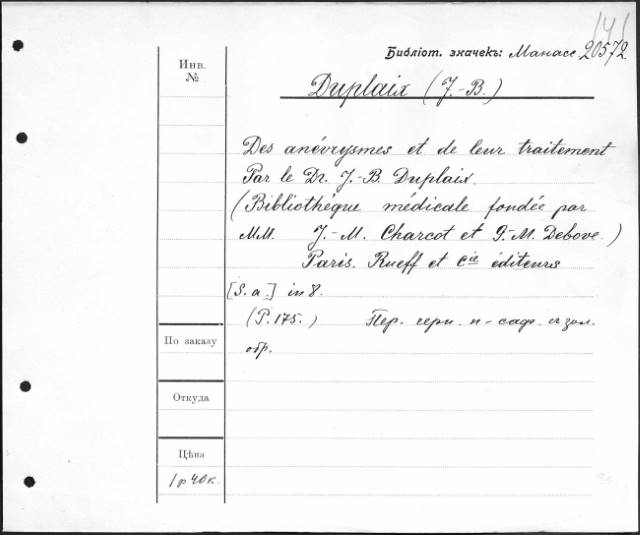 Библіот. значекъ: Манасс 20572
Инв.
№
Duplaix (J.-B.)
Des anévrysmes et de leur traitement
Par le Dr. J.-B. Duplaix.
(Bibliothéque médicale fondée par
MM. J.-M. Charcot et G.-M. Debove.)
Paris. Rueff et Cie éditeurs
[S. a.] in 8.
(P. 175.) Пер. черн. п-саф. с зол.
обр.
По заказу
Откуда
Цѣна
1 р 40 к.